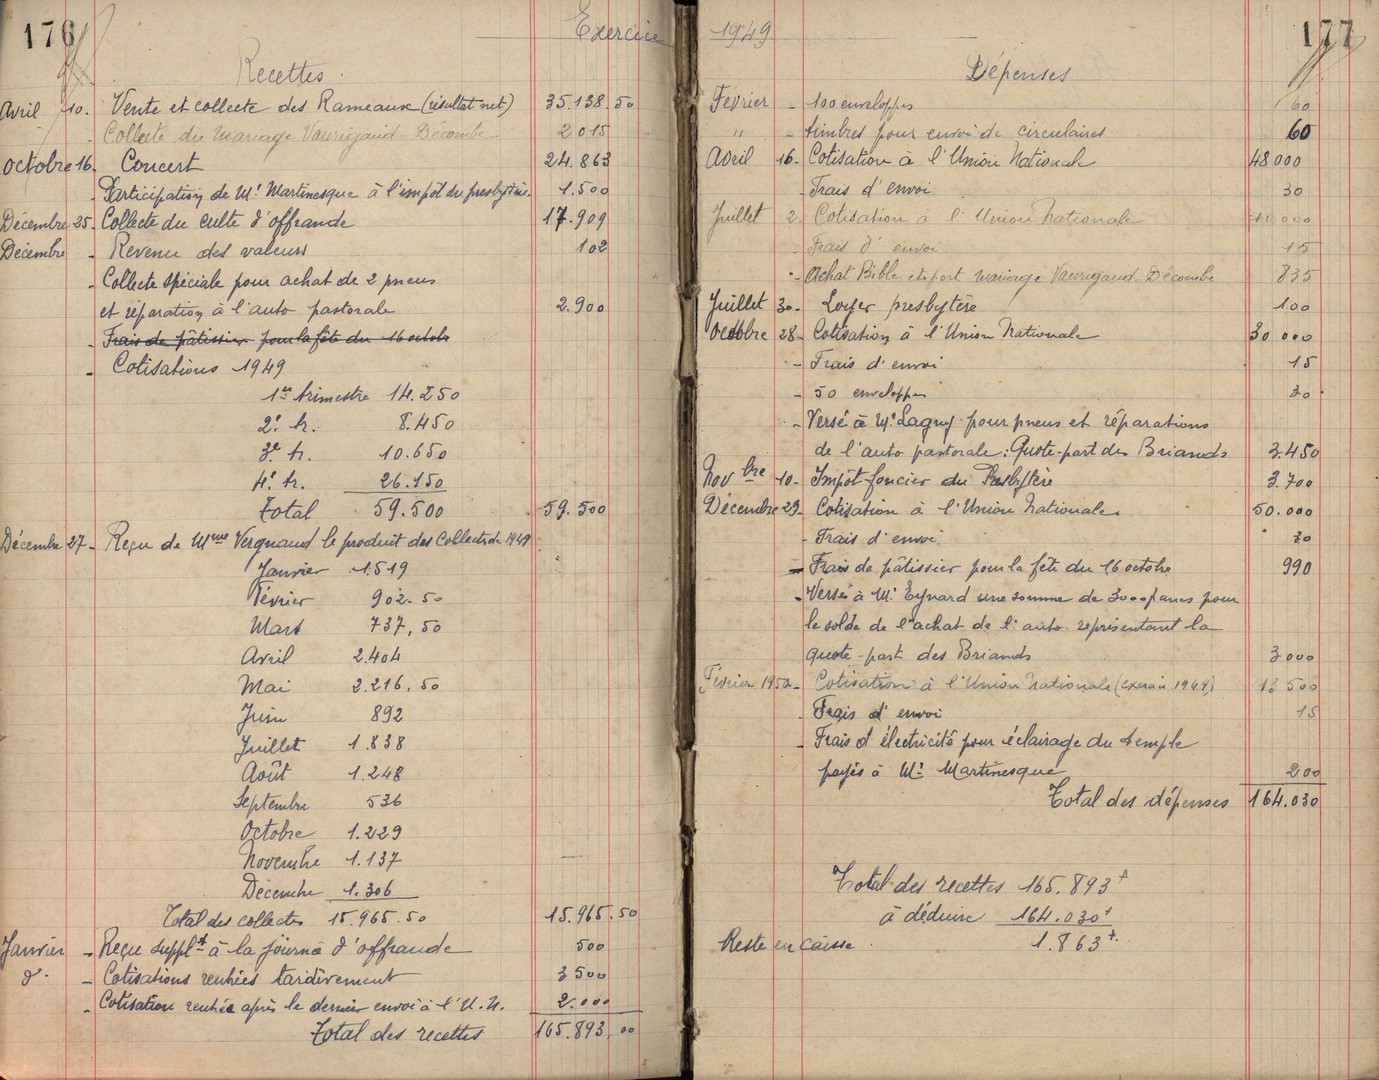 176
Exercice
Recettes.
Avril 10. Vente et collecte des Rameaux (résultat net) 35.138.50
Collecte du mariage Vaurigaud Décombe 2 015
Octobre 16. Concert 24.863
- Participation de Mr Martinesque à l'impôt du presbytère. 1.500
Décembre 25. Collecte du culte d'offrande 17.909
Décembre - Revenu des valeurs 102
- Collecte spéciale pour achat de 2 pneus
et réparation à l'auto pastorale 2.900
- Frais de pâtissier pour la fête du 16 octobre
- Cotisations 1949
1er trimestre 14.250
2e tr. 8.450
3e tr. 10.650
4e tr. 26.150
Total 59.500 59.500
Décembre 27 - Reçu de Mme Vergnaud le produit des Collectes de 1949
Janvier 1.519
Février 902.50
Mars 737,50
Avril 2.404
Mai 2.216,50
Juin 892
Juillet 1.838
Août 1.248
Septembre 536
Octobre 1.229
Novembre 1.137
Décembre 1.306
Total des collectes 15.965.50 15.965.50
Janvier - Reçu supplt à la journée d'offrande 500
d°. - Cotisations rentrées tardivement 3 500
- Cotisation rentrée après le dernier envoi à l'U.N. 2.000
Total des recettes 165.893,00
1949
177
Dépenses
Février - 100 enveloppes 60
" - timbres pour envoi de circulaires 60
Avril 16 - Cotisation à l'Union Nationale 48 000
- Frais d'envoi 30
Juillet 2 - Cotisation à l'Union Nationale 10 000
- Frais d'envoi 15
- Achat Bible et port mariage Vaurigaud-Décombe 835
Juillet 30 - Loyer presbytère 100
Octobre 28 - Cotisation à l'Union Nationale 30 000
- Frais d'envoi 15
- 50 enveloppes 30
- Versé à Mr Lagny pour pneus et réparations
de l'auto pastorale : Quote-part des Briands 3.450
Novbre 10 - Impôt foncier du Presbytère 3.700
Décembre 29 - Cotisation à l'Union Nationale 50.000
- Frais d'envoi 30
- Frais de pâtissier pour la fête du 16 octobre 990
- Versé à Mr Eynard une somme de 3000 francs pour
le solde de l'achat de l'auto représentant la
quote-part des Briands 3000
Février 1950 - Cotisation à l'Union Nationale (exercice 1949) 13 500
- Frais d'envoi 15
- Frais d'électricité pour éclairage du temple
payés à Mr Martinesque 200
Total des dépenses 164.030
Total des recettes 165.893
à déduire 164.030
Reste en caisse 1.863